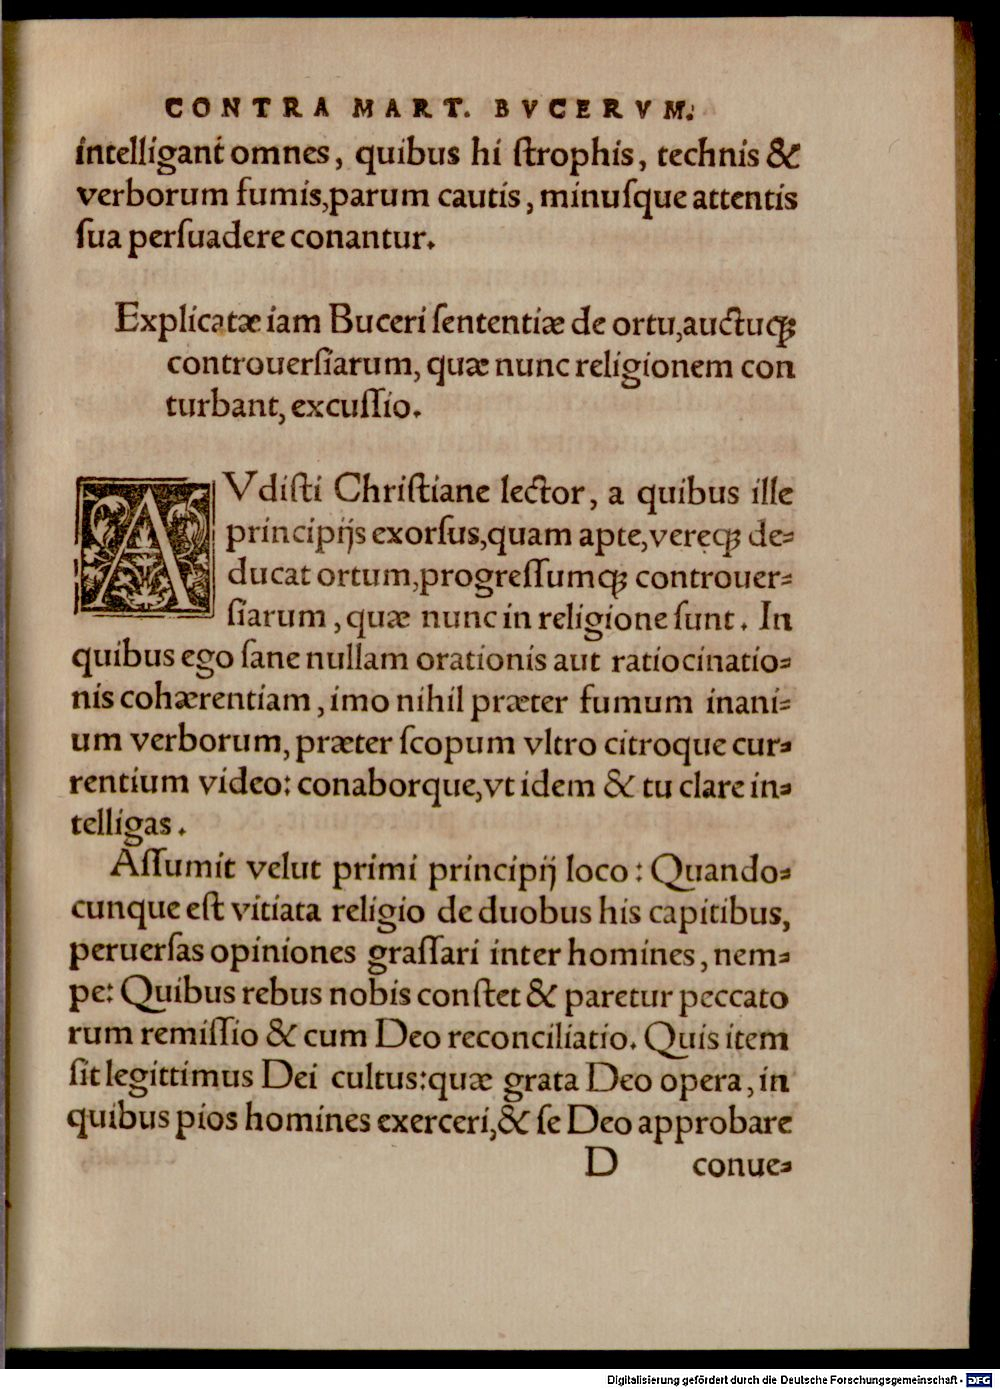 CONTRA MART. BVCERVM.
intelligant omnes, quibus hi ſtrophis, technis &
verborum fumis,parum cautis, minuſque attentis
ſua perſuadere conantur.
Explicatæ iam Buceri ſententiæ de ortu,auctuq́;
controuerſiarum, quæ nunc religionem con
turbant, excuſſio.
AVdiſti Chriſtiane lector, a quibus ille
principijs exorſus,quam apte,vereq́; de-
ducat ortum,progreſſumq́; controuer-
ſiarum, quæ nunc in religione ſunt. In
quibus ego ſane nullam orationis aut ratiocinatio-
nis cohærentiam, imo nihil præter fumum inani-
um verborum, præter ſcopum vltro citroque cur-
rentium video: conaborque,vt idem & tu clare in-
telligas.
Aſſumit velut primi principij loco: Quando-
cunque eſt vitiata religio de duobus his capitibus,
peruerſas opiniones graſſari inter homines, nem-
pe: Quibus rebus nobis conſtet & paretur peccato
rum remiſſio & cum Deo reconciliatio. Quis item
ſit legittimus Dei cultus:quæ grata Deo opera, in
quibus pios homines exerceri,& ſe Deo approbare
D conue-
Digitalisierung gefördert durch die Deutsche Forschungsgemeinschaft - DFG